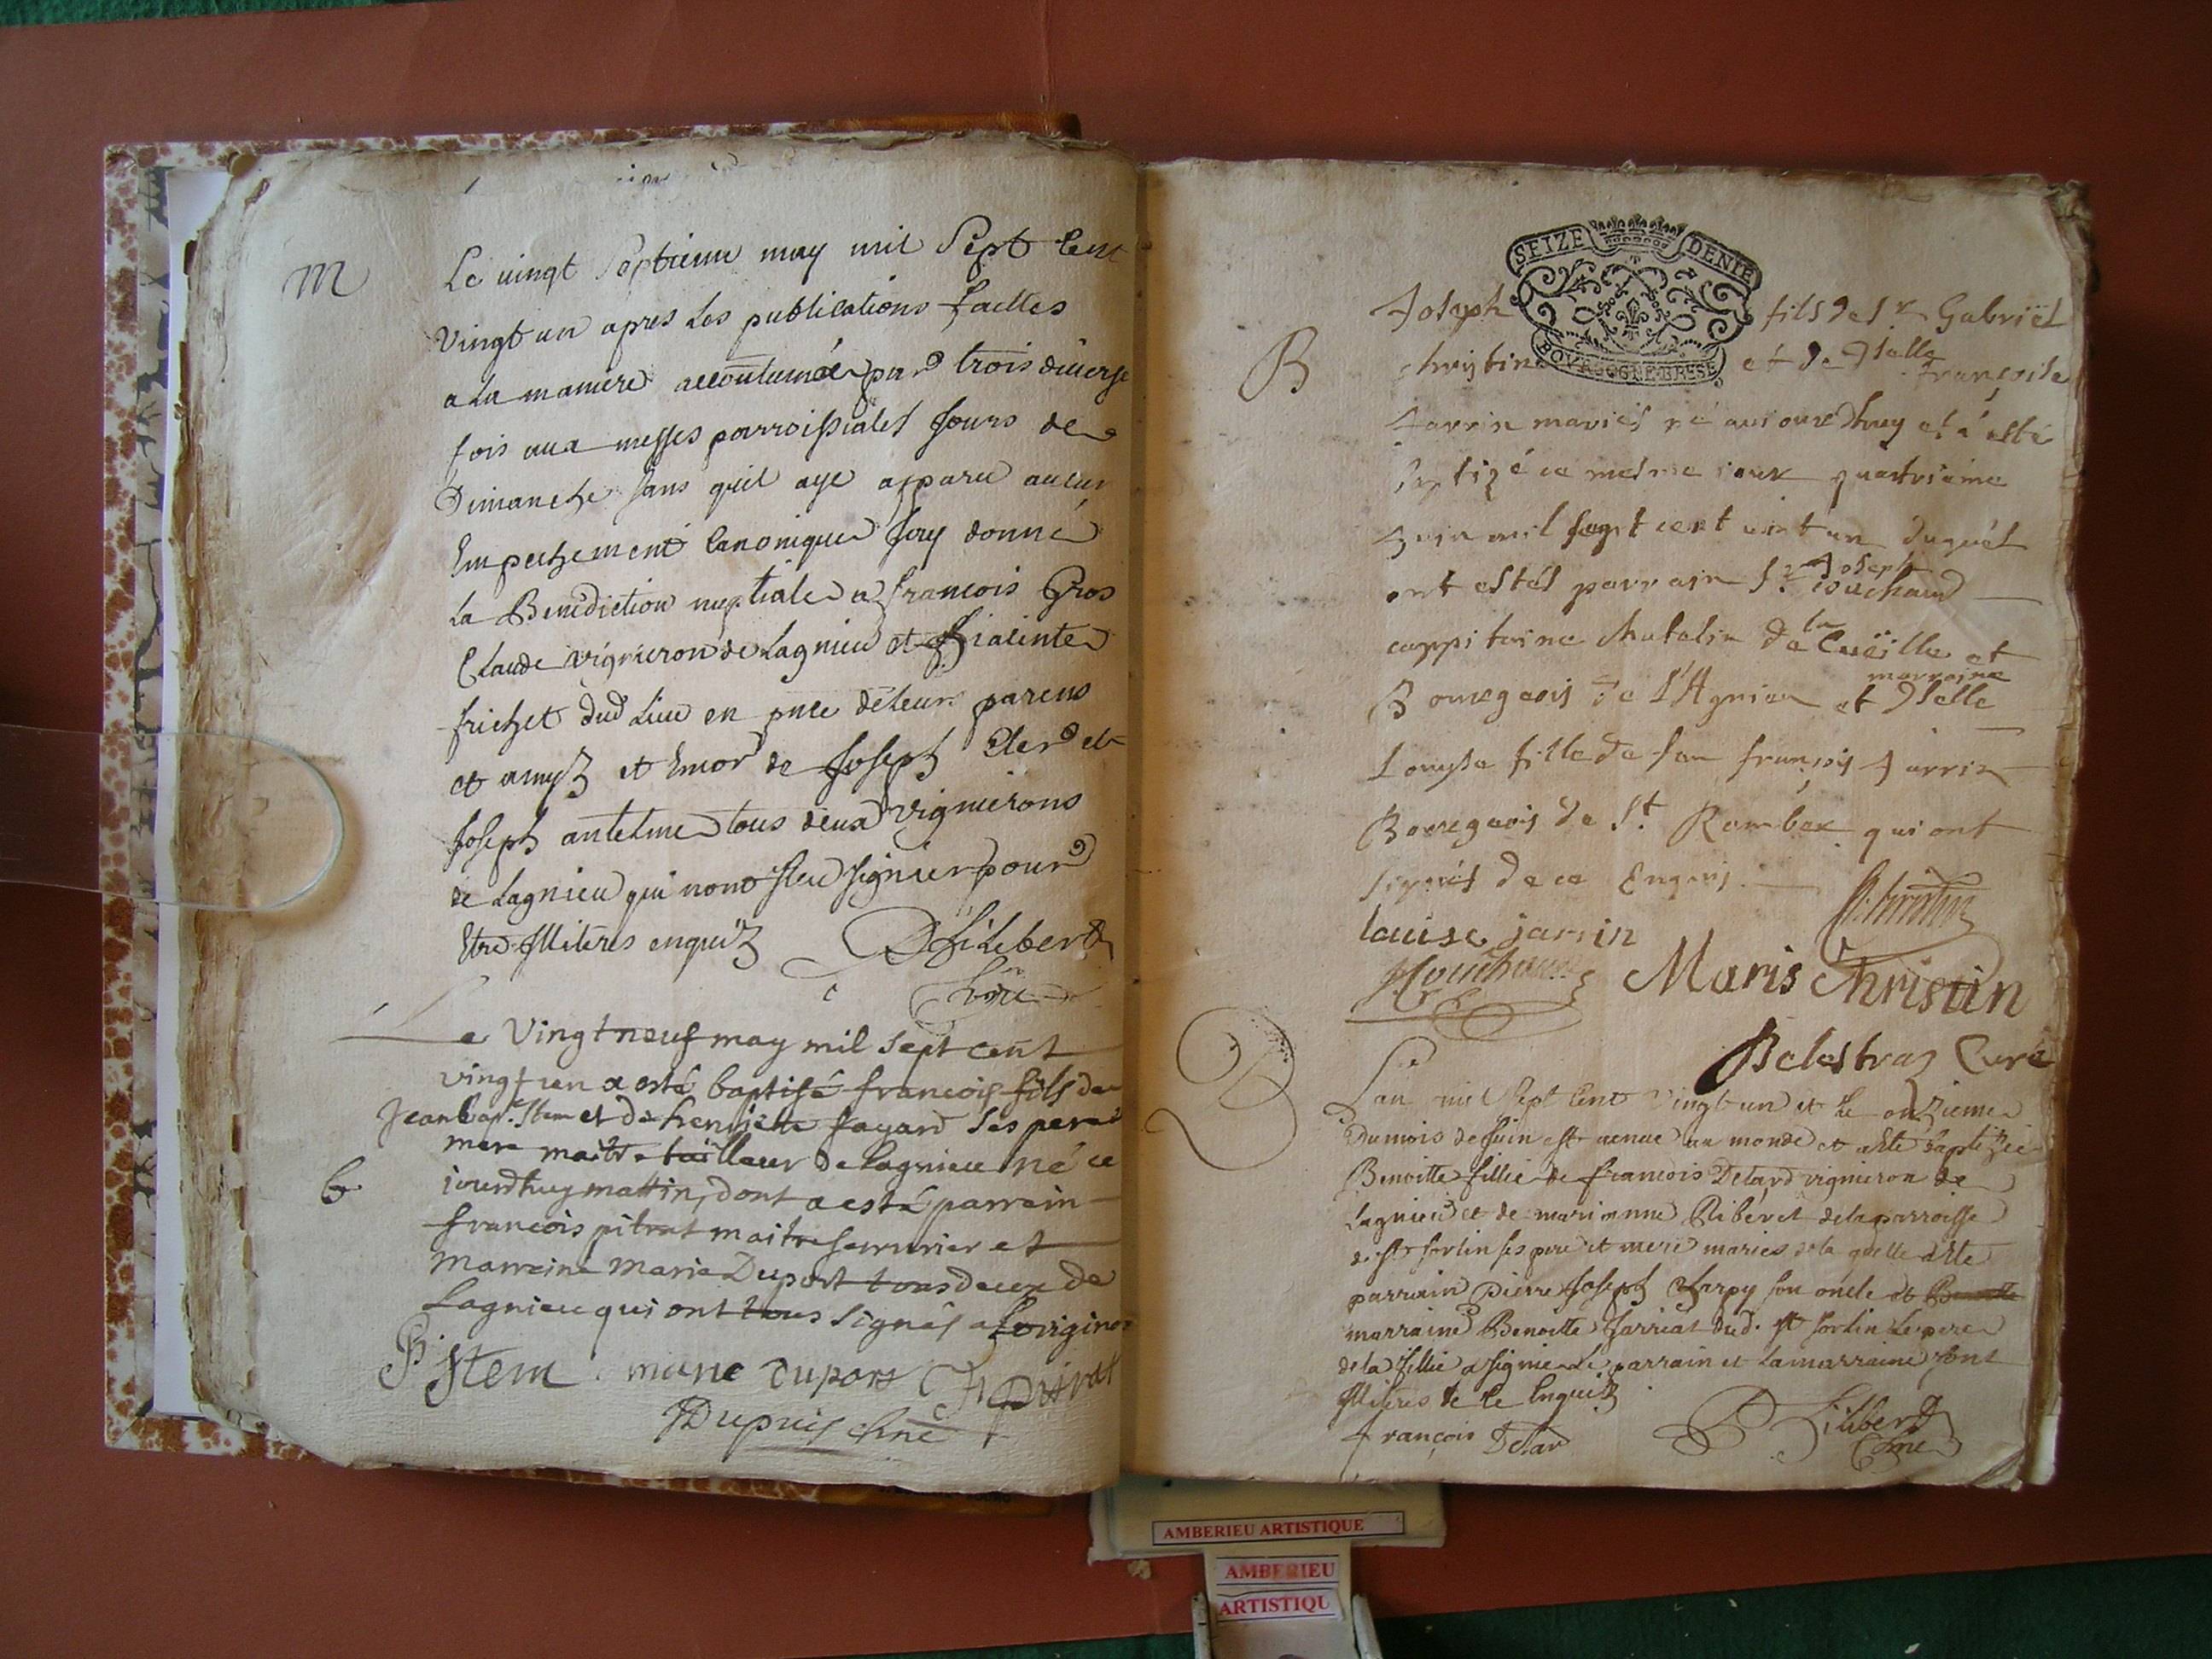 M
Le vingt Septieme may mil Sept Cent
vingt un apres les publications faittes
a la maniere accoutumée par trois diverse
fois aux messes parroissiales jours de
Dimanche sans qu'il aye apparu aucun
Empechement Canonique J'ay donné
la Benediction nuptiale a françois Gros
Claude vigneron de Lagnieu et hiacinte
frichet dud Lieu en pnce de leurs parens
et amys et de Joseph et
Joseph antelme tous deux vignerons
de Lagnieu qui nont sceu signer pour
Etre Illiteres enquis Philibert
Le Vingt neuf may mil Sept cent
vingt un a esté baptisé francois fils de
Jean bap. Stem et de henriette fayard ses pere et
mere maitre tailleur de Lagnieu né ce
b
iourdhuy mattin, dont a esté parrein
francois pitrat maitre serrurier et
Marreine Marie Duport tous deux de
Lagnieu qui ont tous signés a Loriginal
Stem marie duport pitrat
Dupuis
SEIZE DENIE
BOVRGOGNE BRESE
Joseph fils de Sr Gabriel
B
Christin et de Dlle françoise
Jarrin mariés né aujourdhuy et a esté
baptizé ce mesme jour quatrieme
Juin mil sept cent vint un duquel
ont estés parrain Sr Joseph Couchand
cappitaine chatelin de la Cueille et
Bourgeois de L'Agnieu et marraine Dlle
Louyse fille de Jean françois Jarrin
Bourgeois de St. Rambert qui ont
signés de ce Enquis.
louise jarrin
Couchand Maris Christin
Balestraz Curé
B
Lan mil Sept Cent vingt un et le onzieme
Du mois de Juin est venue au monde et a esté baptizée
Benoitte fillie de francois Delard vigneron de
Lagnieu et de marianne Riberet de la parroisse
de St sorlin ses pere et mere mariés de la quelle a esté
parrain Pierre Joseph Charpy son oncle et
marraine Benoitte Jarriat dud. St sorlin Le pere
de la fillie a signe Le parrain et la marraine sont
Illiteres de ce Enquis
françois Delar Philibert
AMBERIEU ARTISTIQUE
AMBERIEU
ARTISTIQU